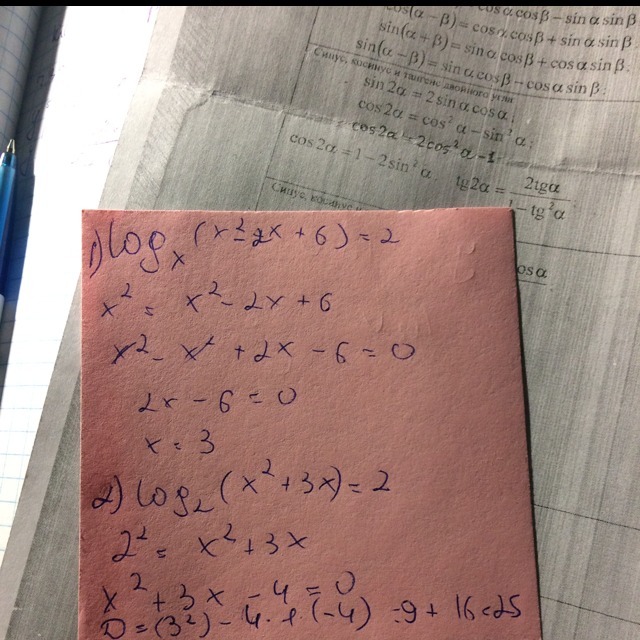 cos(α − β) = cosαcosβ + sinαsinβ
sin(α + β) = sinαcosβ + cosαsinβ
sin(α − β) = sinαcosβ − cosαsinβ.
Синус, косинус и тангенс двойного угла
sin 2α = 2 sinα cosα;
cos 2α = cos² α − sin² α;
cos2α = 2cos² α − 1
cos 2α = 1 − 2 sin² α tg2α = 2tgα / 1 − tg²α
Синус, косинус и
osα
1) log_x (x² − 2x + 6) = 2
x² = x² − 2x + 6
x² − x² + 2x − 6 = 0
2x − 6 = 0
x = 3
2) log₂ (x² + 3x) = 2
2² = x² + 3x
x² + 3x − 4 = 0
D = (3²) − 4 · 1 · (−4) = 9 + 16 = 25